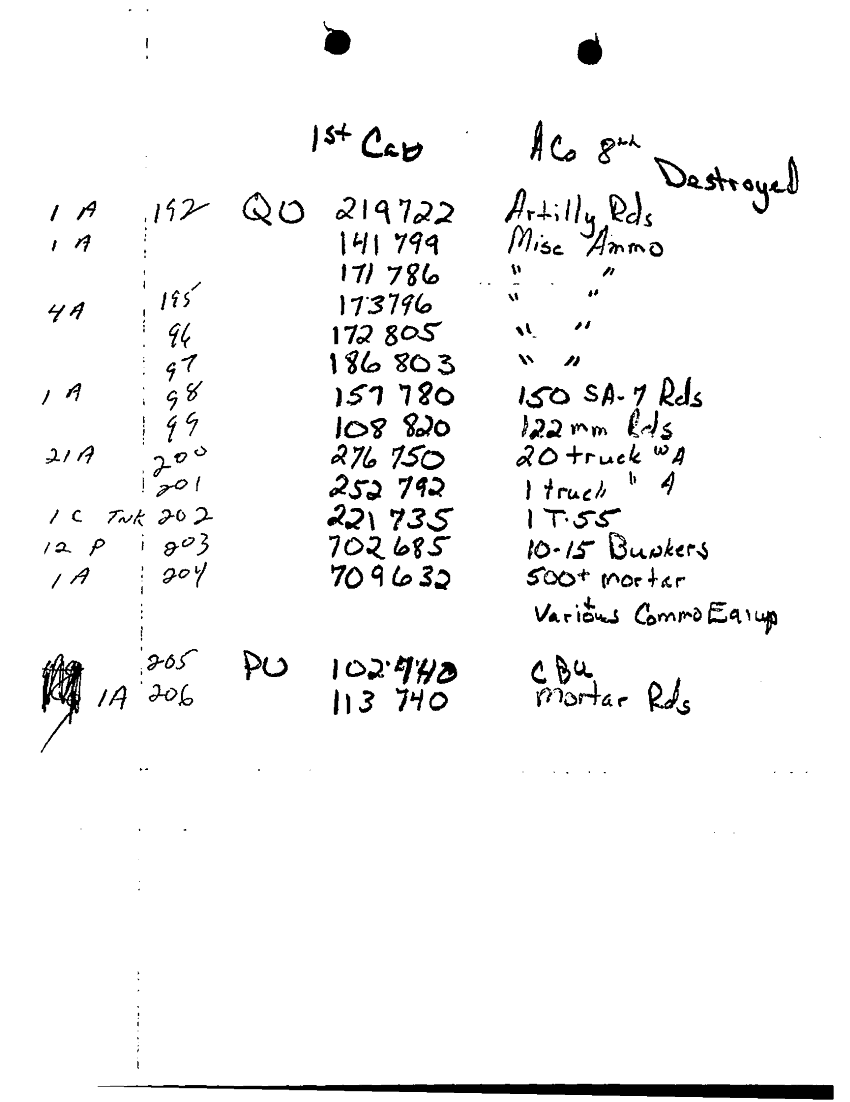 1st Cav A Co 8th
Destroyed
1 A 192 QU 219722 Artilly Rds
1 A 141 799 Misc Ammo
171 786 " "
4 A 195 173796 " "
96 172 805 " "
97 186 803 " "
1 A 98 157 780 150 SA-7 Rds
99 108 820 122 mm Rds
21 A 200 276 750 20 truck w A
201 252 792 1 truck " A
1 C TNK 202 221 735 1 T-55
12 P 203 702 685 10-15 Bunkers
1 A 204 709632 500+ mortar
Various Commo Equip
205 PU 102 740 CBU
1A 206 113 740 Mortar Rds